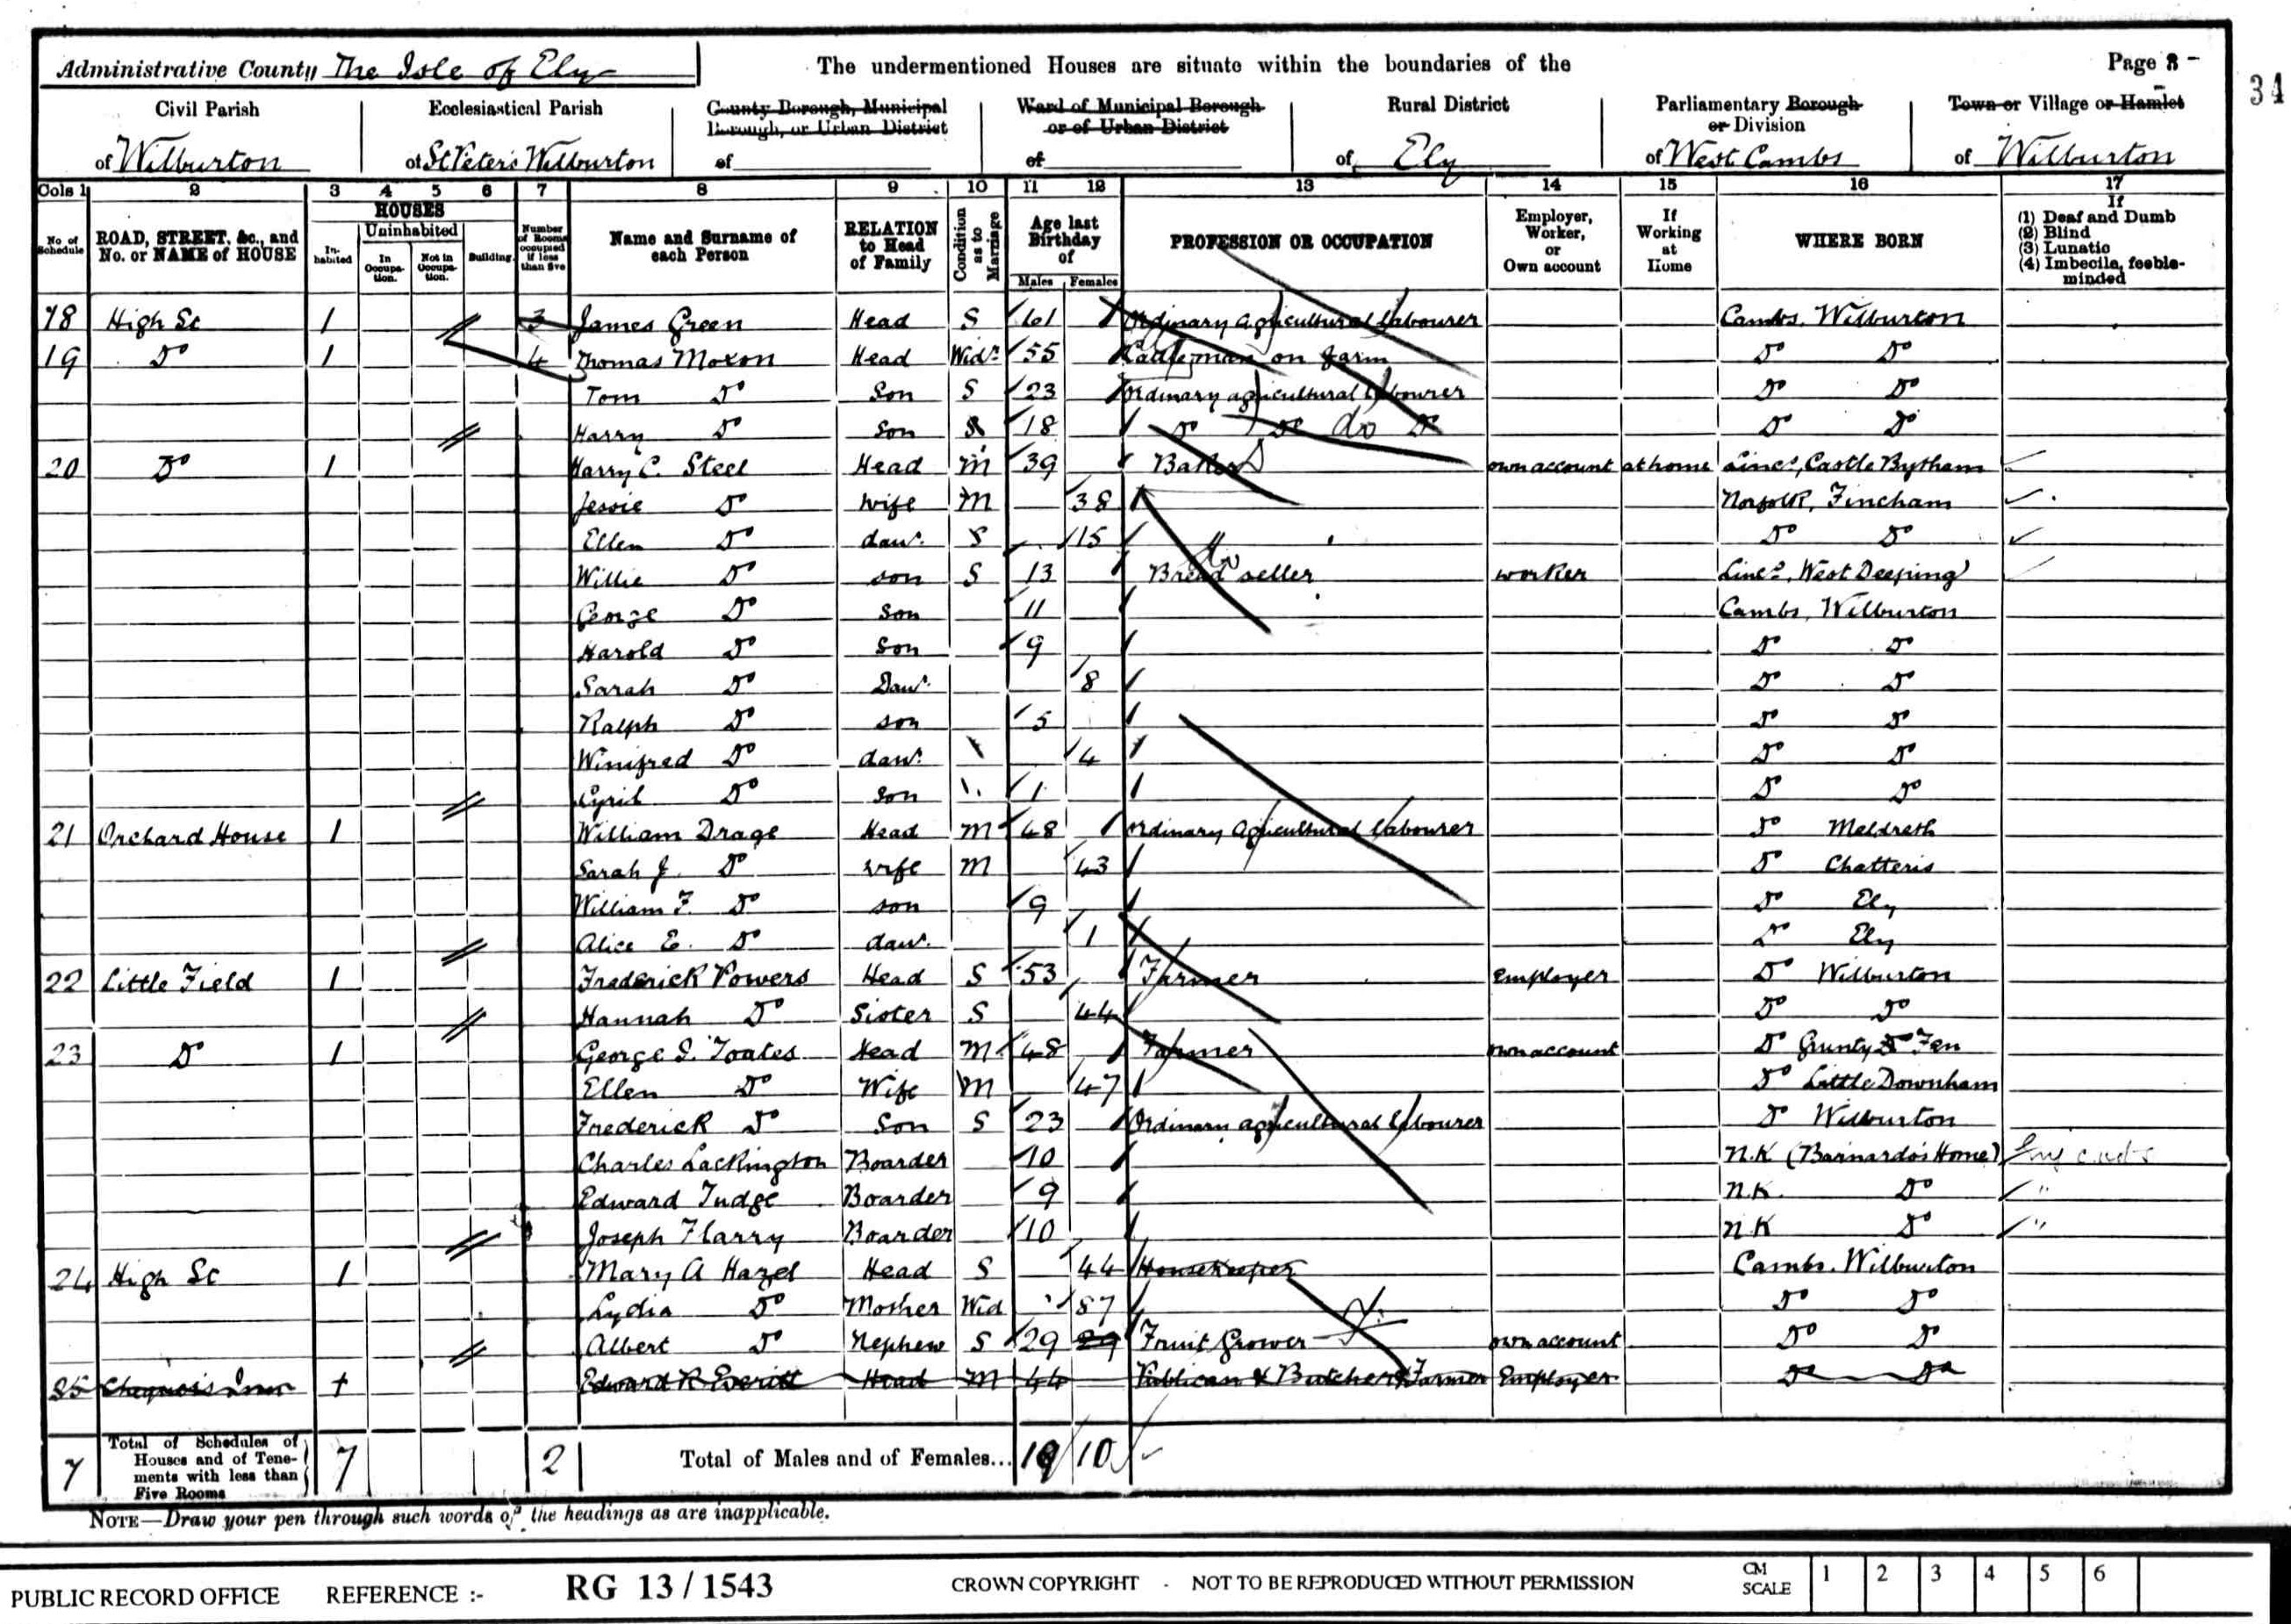 Administrative County The Isle of Ely The undermentioned Houses are situate within the boundaries of the Page 3
34
Civil Parish Ecclesiastical Parish County Borough, Municipal Borough, or Urban District Ward of Municipal Borough or of Urban District Rural District Parliamentary Borough or Division Town or Village or Hamlet
of Wilburton of St Peter's Wilburton of of of Ely of West Cambs of Wilburton
Cols 1 2 3 4 5 6 7 8 9 10 11 12 13 14 15 16 17
No. of Schedule ROAD, STREET, &c., and No. or NAME of HOUSE HOUSES Inhabited Uninhabited In Occupation. Not in Occupation. Building. Number of Rooms occupied if less than five Name and Surname of each Person RELATION to Head of Family Condition as to Marriage Age last Birthday of Males Females PROFESSION OR OCCUPATION Employer, Worker, or Own account If Working at Home WHERE BORN If (1) Deaf and Dumb (2) Blind (3) Lunatic (4) Imbecile, feeble-minded
18 High St 1 3 James Green Head S 61 Ordinary agricultural labourer Cambs, Wilburton
19 Do 1 4 Thomas Moxon Head Widr 55 on farm Do Do
Tom Do Son S 23 Ordinary agricultural labourer Do Do
Harry Do Son S 18 Do Do do Do Do Do
20 Do 1 Harry C. Steel Head M 39 Baker own account at home Lincs, Castle Bytham
Jessie Do wife M 38 Norfolk, Fincham
Ellen Do daur. S 15 Do Do
Willie Do son S 13 Bread seller worker Lincs, West Deeping
George Do Son 11 Cambs, Wilburton
Harold Do Son 9 Do Do
Sarah Do Daur. 8 Do Do
Ralph Do son 5 Do Do
Winifred Do daur. 4 Do Do
Cyril Do Son 1 Do Do
21 Orchard House 1 William Drage Head M 48 Ordinary agricultural labourer Do Meldreth
Sarah J. Do wife M 43 Do Chatteris
William F. Do son 9 Do Ely
Alice E. Do daur. 1 Do Ely
22 Little Field 1 Frederick Powers Head S 53 Farmer Employer Do Wilburton
Hannah Do Sister S 44 Do Do
23 Do 1 George I. Toates Head M 48 Farmer own account Do Grunty Fen
Ellen Do Wife M 47 Do Little Downham
Frederick Do Son S 23 Ordinary agricultural labourer Do Wilburton
Charles Lackington Boarder 10 N.K. (Barnardo's Home)
Edward Judge Boarder 9 N.K. Do "
Joseph Flarry Boarder 10 N.K Do "
24 High St 1 Mary A Hazel Head S 44 Housekeeper Cambs. Wilburton
Lydia Do Mother Wid 87 Do Do
Albert Do Nephew S 29 29 Fruit Grower own account Do Do
25 Chequers Inn 1 Edward R Everitt Head M 44 Publican & Butcher & Farmer Employer Do Do
7 Total of Schedules of Houses and of Tenements with less than Five Rooms 7 2 Total of Males and of Females... 19 10
NOTE—Draw your pen through such words of the headings as are inapplicable.
PUBLIC RECORD OFFICE REFERENCE :- RG 13 / 1543 CROWN COPYRIGHT - NOT TO BE REPRODUCED WITHOUT PERMISSION CM SCALE 1 2 3 4 5 6